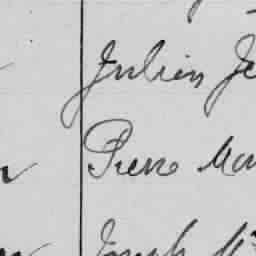 Julien Je
Pierre Mon
Joseph Mc